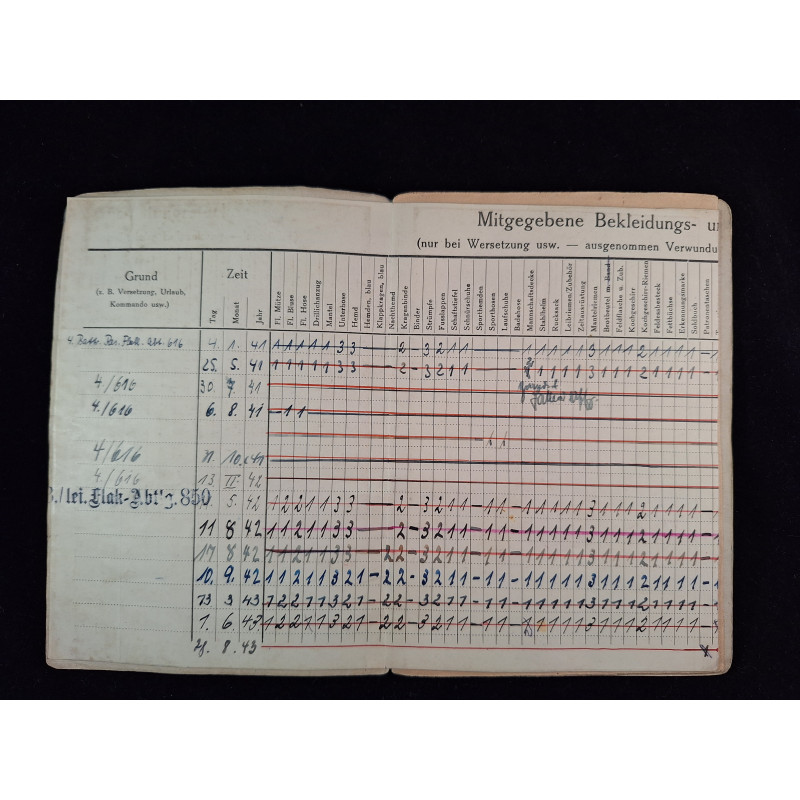 Mitgegebene Bekleidungs- u
(nur bei Wersetzung usw. — ausgenommen Verwundu
Grund
(z. B. Versetzung, Urlaub,
Kommando usw.)
Zeit
Tag
Monat
Jahr
Fl. Mütze
Fl. Bluse
Fl. Hose
Drillichanzug
Mantel
Unterhose
Hemd
Hemden, blau
Klappkragen, blau
Nachthemd
Kragenbinde
Binder
Strümpfe
Fusslappen
Schaftstiefel
Schnürschuhe
Sporthemden
Sporthosen
Laufschuhe
Badehose
Mannschaftsdecke
Stahlhelm
Rucksack
Leibriemen/Zubehör
Zeltausrüstung
Mantelriemen
Brotbeutel m. Band
Feldflasche u. Zub.
Kochgeschirr
Kochgeschirr-Riemen
Feldessbesteck
Fettbüchse
Erkennungsmarke
Soldbuch
Patronentaschen
4. Battr. Res. Flak. Abt. 616 4. 1. 41 1 1 1 1 1 3 3 2 - 3 2 1 1
25. 5. 41 1 1 1 1 1 3 3 2 - 3 2 1 1
4./616 30 7. 41
4./616 6. 8. 41 - 1 1
1 1
4/616 11. 10. 41
4./616 13 II. 42
3./lei. Flak-Abt'g. 850 5. 42 1 2 2 1 1 3 3 2 - 3 2 1 1 - 1 1 - 1 1 1 1 1 3 1 1 1 2 1 1 1 1 - 1
11 8 42 1 1 2 1 1 3 3 - 2 - 3 2 1 1 - 1 1 - 1 1 1 1 1 3 1 1 1 2 1 1 1 1 - 1
17 8 42 1 1 2 1 1 3 3 - 2 2 - 3 2 1 1 - 1 1 - 1 1 1 1 1 3 1 1 1 2 1 1 1 1 - 1
10. 9. 42 1 1 2 1 1 3 2 1 - 2 2 - 3 2 1 1 - 1 1 - 1 1 1 1 1 3 1 1 1 2 1 1 1 1 - 1
13 3 43 1 2 2 1 1 3 2 1 - 2 2 - 3 2 1 1 - 1 1 - 1 1 1 1 1 3 1 1 1 2 1 1 1 1 -
1. 6. 43 1 2 2 1 1 3 2 1 - 2 2 - 3 2 1 1 - 1 1 - 1 1 1 1 3 1 1 1 2 1 1 1 1 -
8. 43